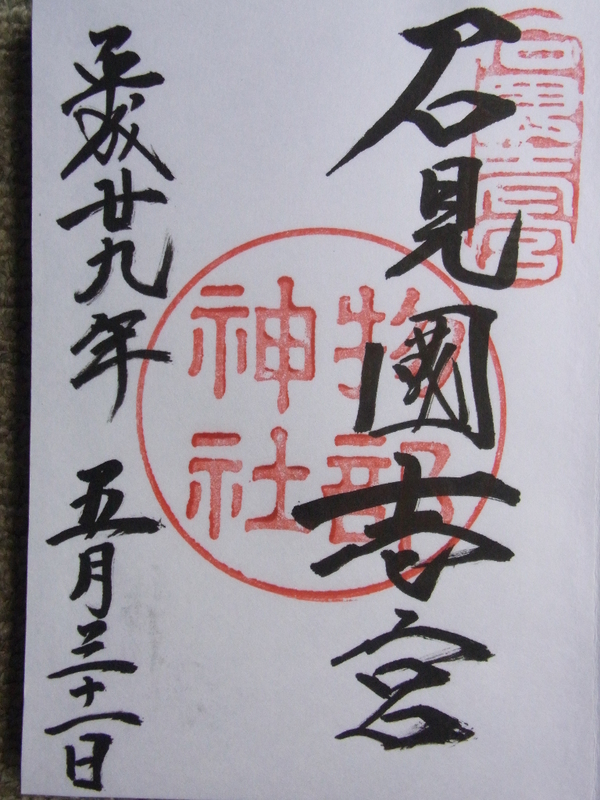 石見國壱宮
物部
神社
平成廿九年 五月三十一日